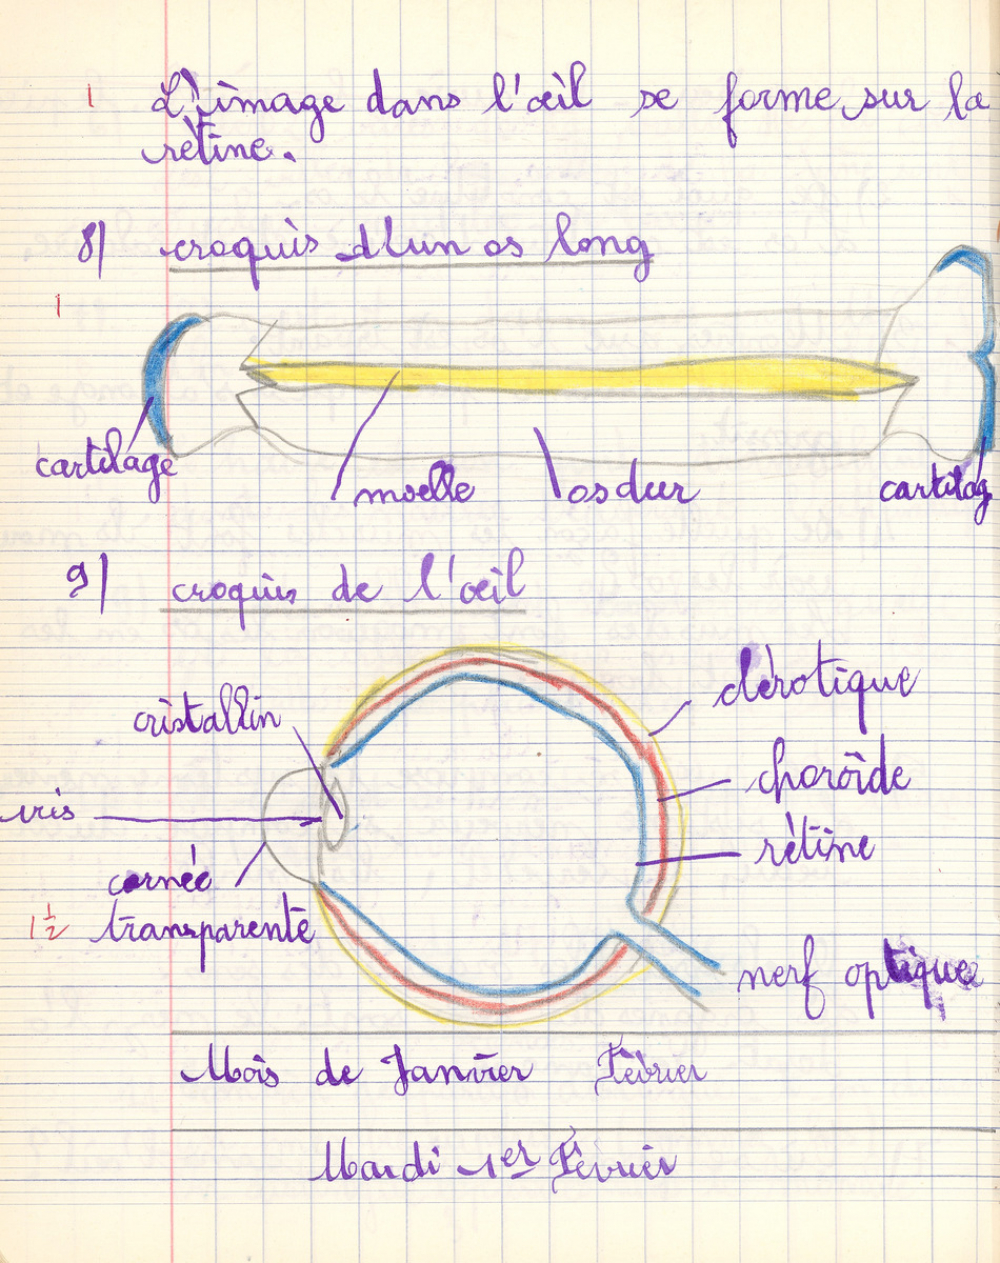 1 L'image dans l'œil se forme sur la
rétine.
8) croquis d'un os long
1
cartilage
moelle
os dur
cartilag
9) croquis de l'œil
cristallin
clérotique
choroïde
iris
rétine
cornée
1 1/2 transparente
nerf optique
Mois de Janvier Février
Mardi 1er Février